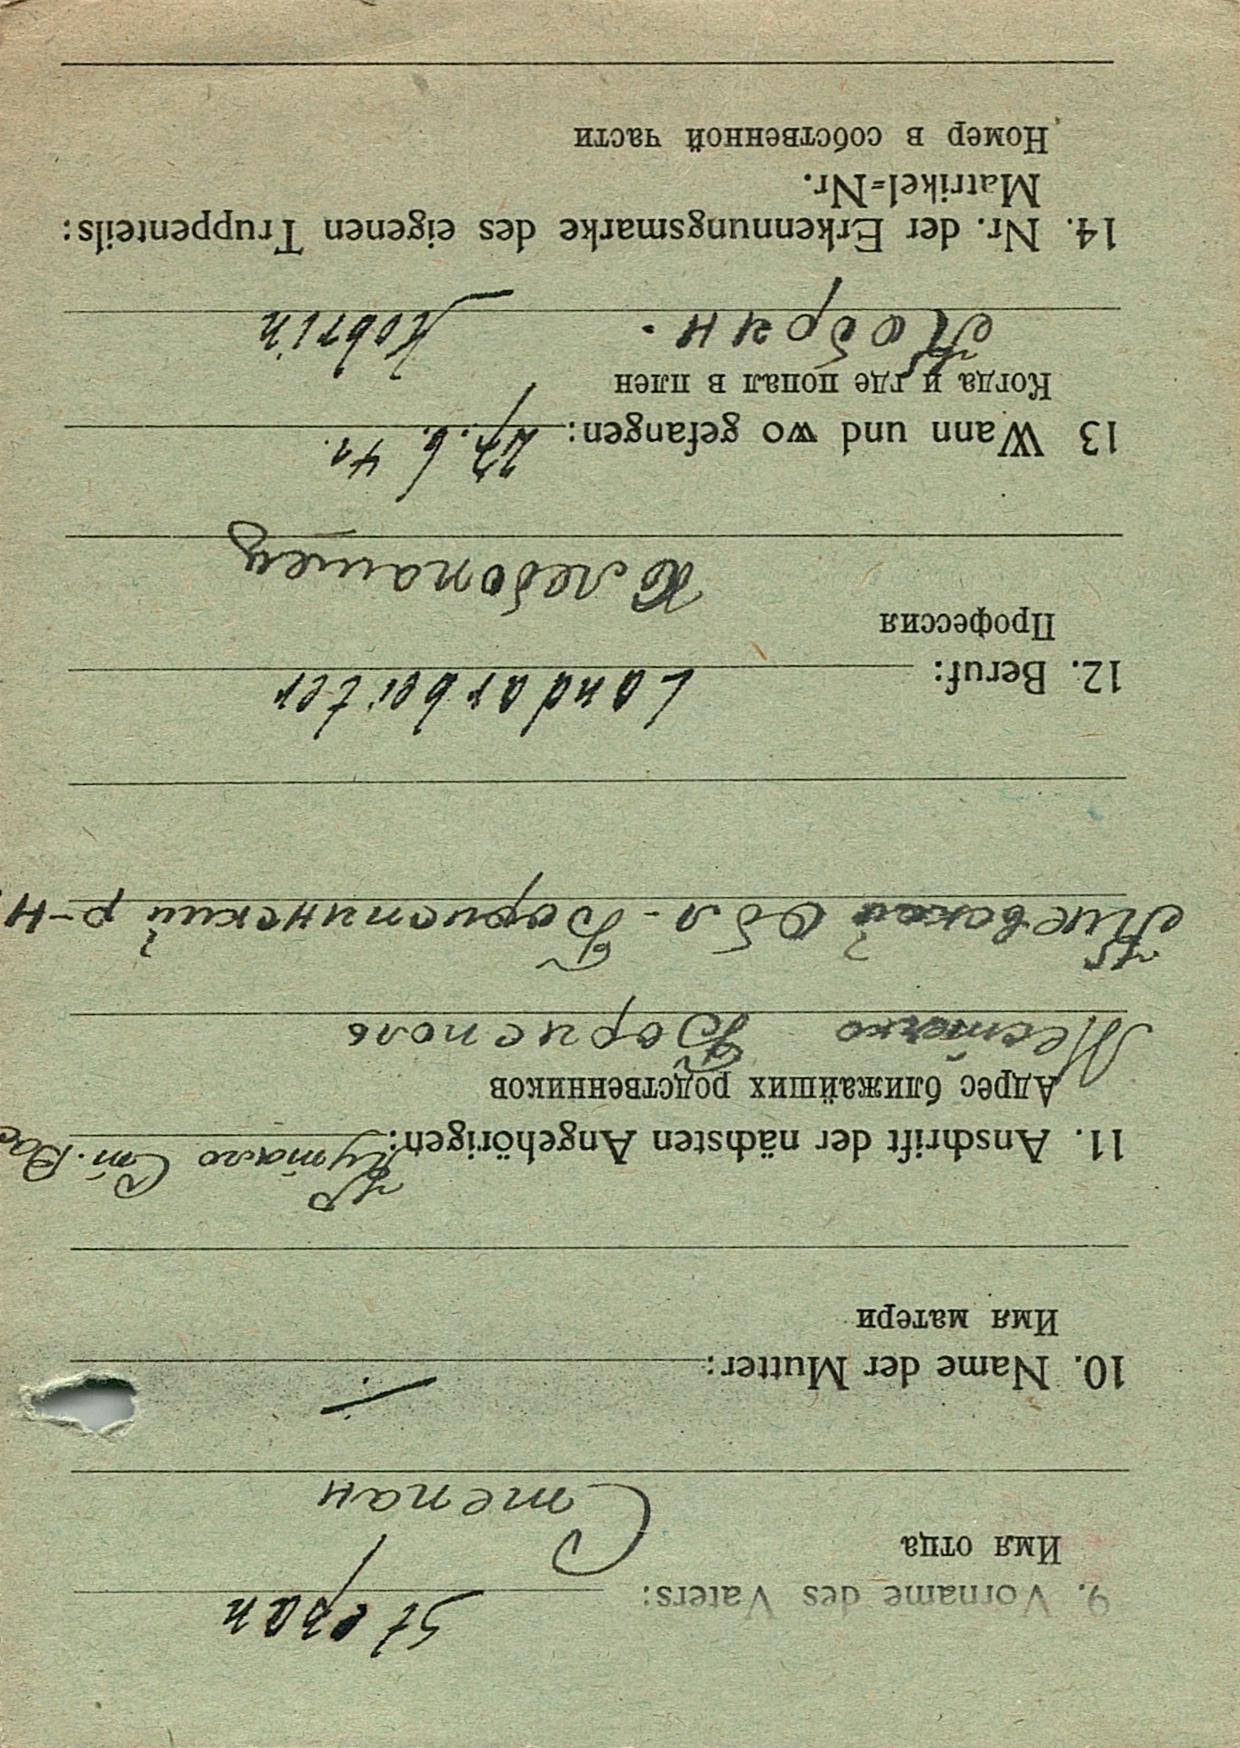 9. Vorname des Vaters: Stepan
Имя отца
Степан
10. Name der Mutter: –
Имя матери
11. Anschrift der nächsten Angehörigen: Ст.
Адрес ближайших родственников
Местечко Борисполь
Киевской Обл - Бориспинский р-н
12. Beruf: Landarbeiter
Профессия
Хлебопашец
13 Wann und wo gefangen: 27.6.41.
Когда и где попал в плен
Кобрин. Kobrin
14. Nr. der Erkennungsmarke des eigenen Truppenteils:
Matrikel=Nr.
Номер в собственной части